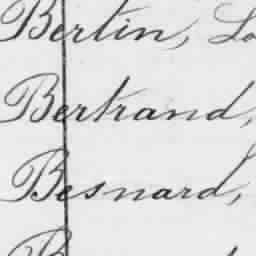 Bertin, Lo
Bertrand,
Besnard,